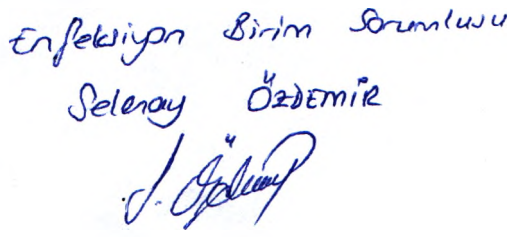 Enfeksiyon Birim Sorumlusu
Selenay ÖZDEMİR
S. Özdemir